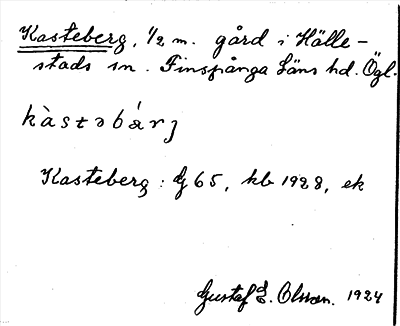 Kasteberg, 1/2 m. gård i Hälle-
stads sn. Finspånga Läns hd. Ögl.
kàstəbárj
Kasteberg: G 65, kb 1928, ek
Gustaf E. Olsson. 1924